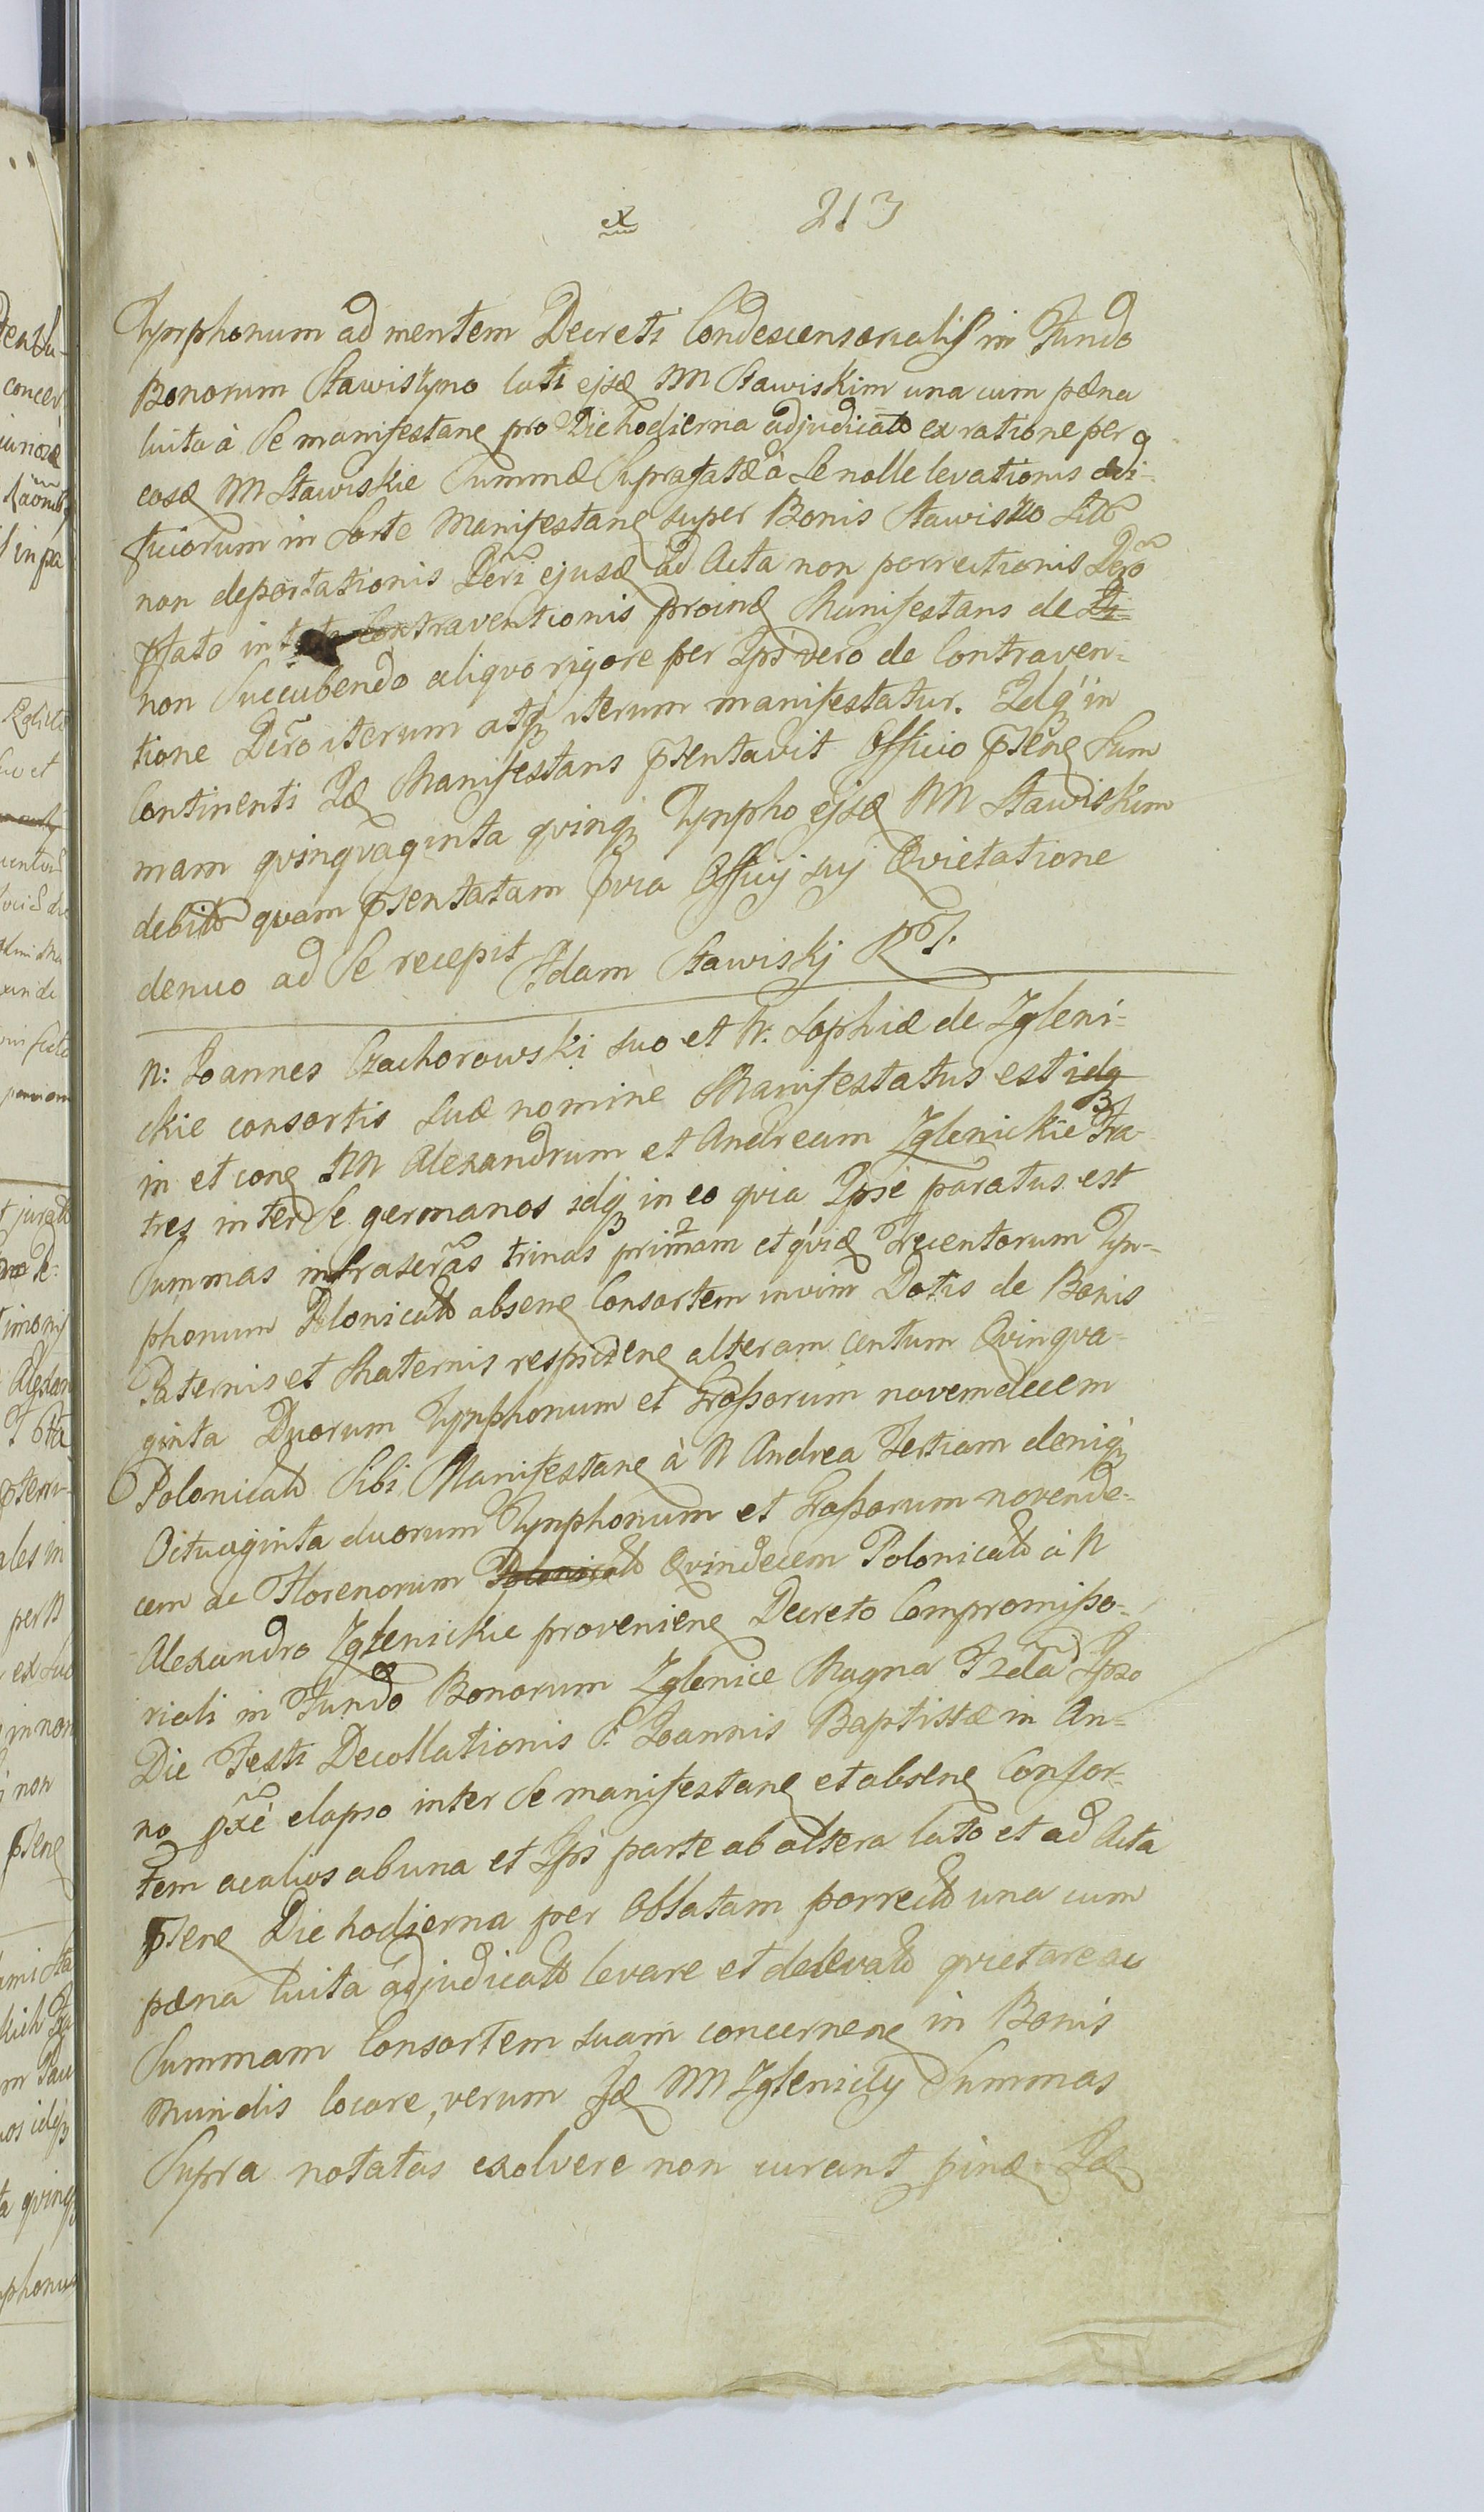 ex 213
Tynphonum ad mentem Decreti Condescensorialis in Fundo
Bonorum Stawiszyno lati ejsd NN Stawiskim una cum pæna
luita à Se manifestane pro Die hodierna adjudicato ex ratione per
eosd NN Stawiskie Summæ Suprafatæ à Se nolle levationis ædi-
ficiorum in Sorte Manifestane super Bonis Stawiszo Sito
non deportationis Dcri ejusd ad Acta non porrectionis Dcro
pfato in contraventionis proind Manifestans de
non Succubendo aliquo rigore per Ips vero de Contraven=
tione Dcro iterum atq iterum manifestatur. Idq in
Continenti Id Manifestans pñtavit Officio pñte Sum
mam qvinqvaginta qvinq Tynpho ejsd NN Stawiskim
debito qvam pñtatam pvia Officij sui Qvietatione
denuo ad Se recepit Adam Stawiskj
N: Joannes Czachorowski suo et N. Sophiæ de Zgleni-
ckie consortis Suæ nomine Manifestatus est idq
in et cone NN Alexandrum et Andream Zglenickie Fra-
tres inter Se germanos idq in eo qvia Ipse paratus est
Summas infrascras trinas primam et qvid Trecentorum Tyn-
phonum Polonicalo absene Consortem in vim Dotis de Bonis
Paternis et Maternis respiciene alteram Centum Qvinqva-
ginta Duorum Tynphonum et Grossorum novemdecem
Polonicalo Sibi Manifestane à N Andrea Tertiam deniq
Octuaginta duorum Tynphonum et Grossorum novende-
cem ac Florenorum Polonicalo Qvindecem Polonicalo à N
Alexandro Zglenickie proveniene Decreto Compromisso-
riali in Fundo Bonorum Zglenice Magna Ipso
Die Festi Decollationis S. Joannis Baptistæ in An-
no pxe elapso inter Se manifestane et absene Consor-
tem ac alios ab una et Ips parte ab altera lato et ad Acta
pñte Die hodierna per Oblatam porrecto una cum
pæna luita adjudicato levare et de levato qvietare ac
Summam Consortem suam concernene in Bonis
mundis locare, verum Id NN Zglenicky Summas
Supra notatas exolvere non curant pind Id